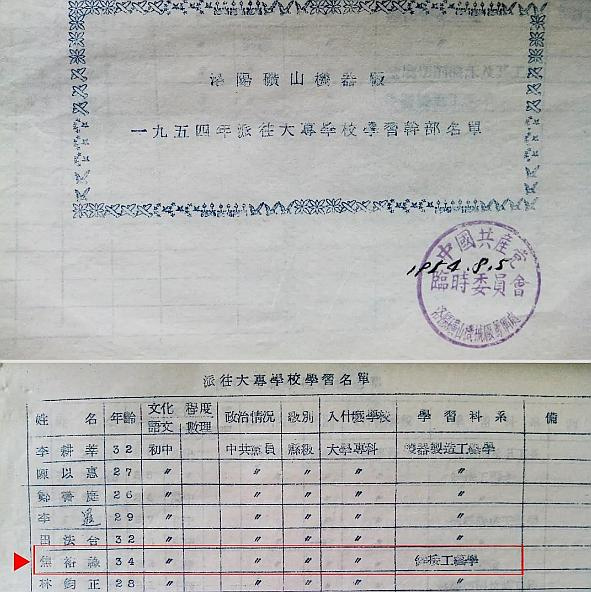 洛陽礦山機器廠
一九五四年派往大專學校學習幹部名單
中國共產党
臨時委員會
1954.8.5
派往大專學校學習名單
姓 名 年齡 文化程度 政治情況 級別 入什麽學校 學習科系 備
語文 數理
李耕莘 32 初中 中共黨員 縣級 大學專科 機器製造工藝學
陳以惠 27 〃 〃 〃 〃 〃
鄭書庭 26 〃 〃 〃 〃 〃
李 29 〃 〃 〃 〃 〃
田法台 32 〃 〃 〃 〃 〃
焦裕祿 34 〃 〃 〃 〃 工藝學
林鈞正 28 〃 〃 〃 〃 〃